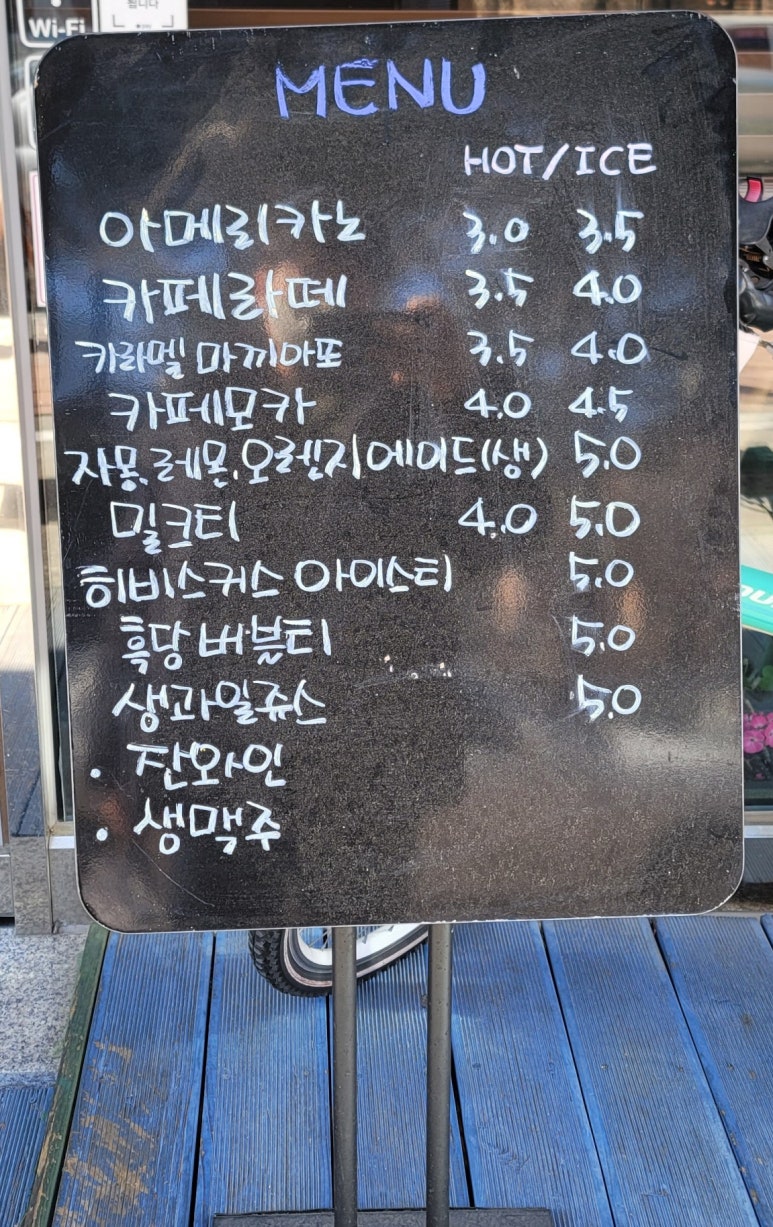 Wi-Fi
됩니다
MENU
HOT/ICE
아메리카노 3.0 3.5
카페라떼 3.5 4.0
카라멜 마끼아또 3.5 4.0
카페모카 4.0 4.5
자몽.레몬.오렌지에이드(생) 5.0
밀크티 4.0 5.0
히비스커스 아이스티 5.0
흑당 버블티 5.0
생과일쥬스 5.0
· 잔와인
· 생맥주